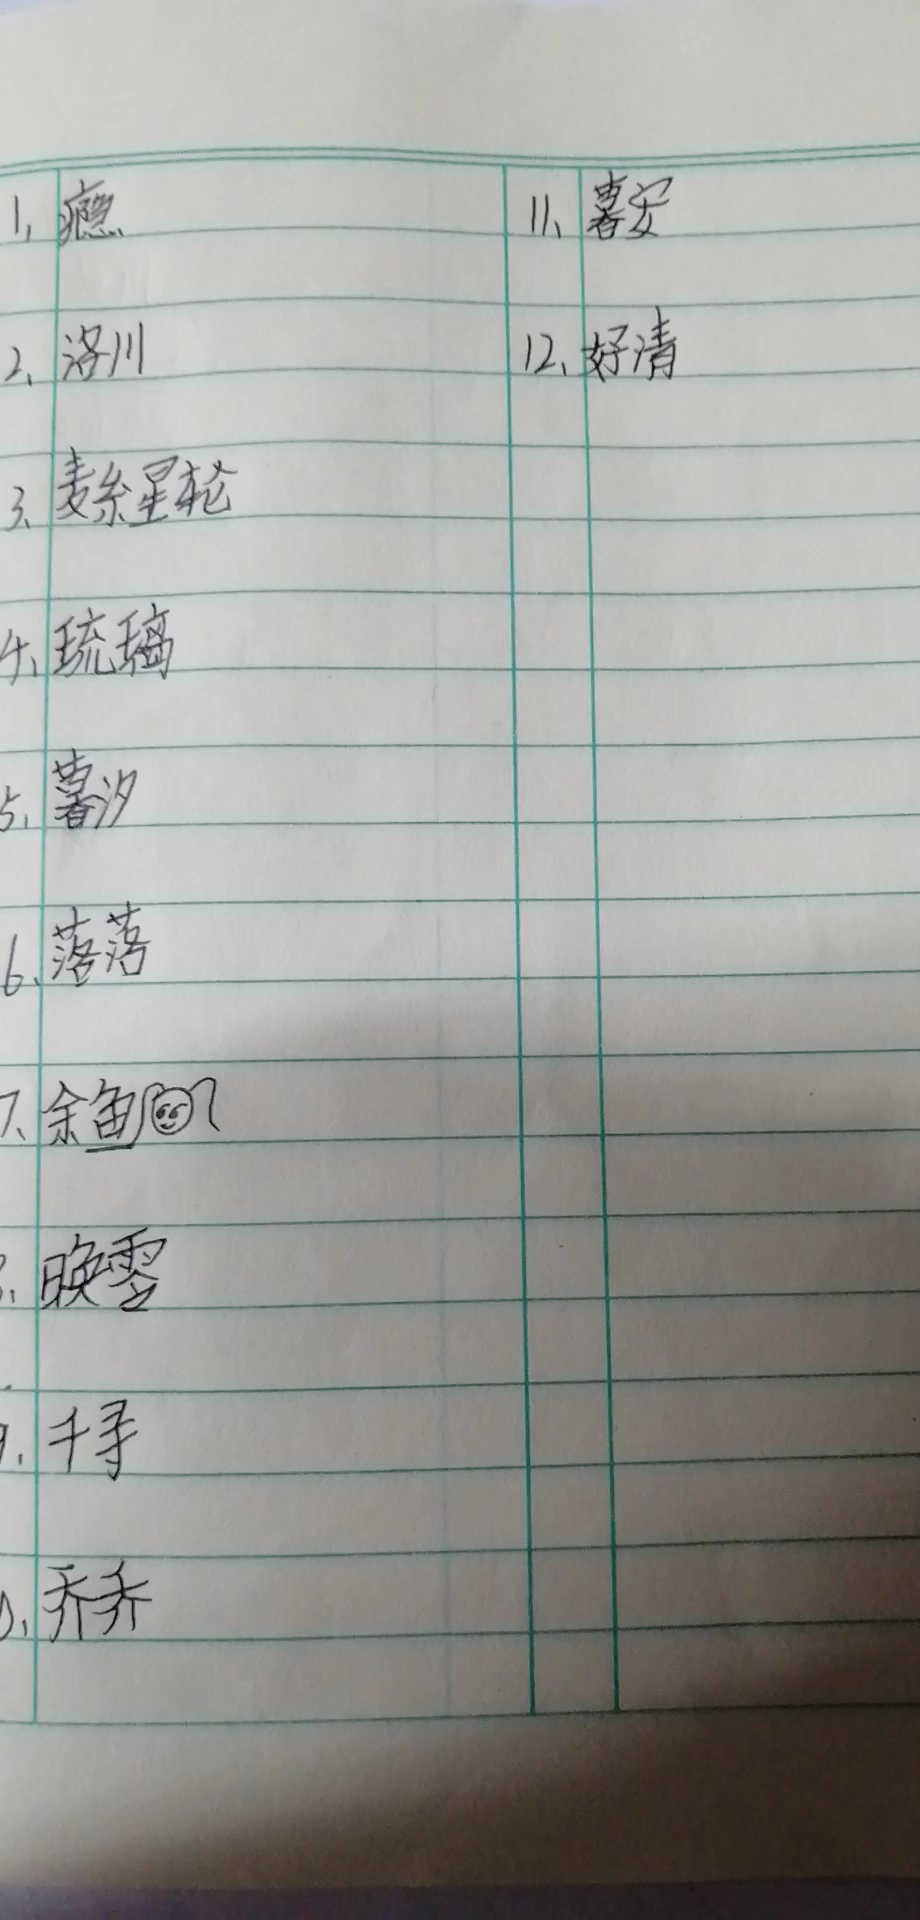 1、瘾
2、洛川
3、麦糸星轮
4、琉璃
5、暮汐
6、落落
7、余鱼
8、晚雯
9、千寻
10、乔乔
11、暮安
12、好清